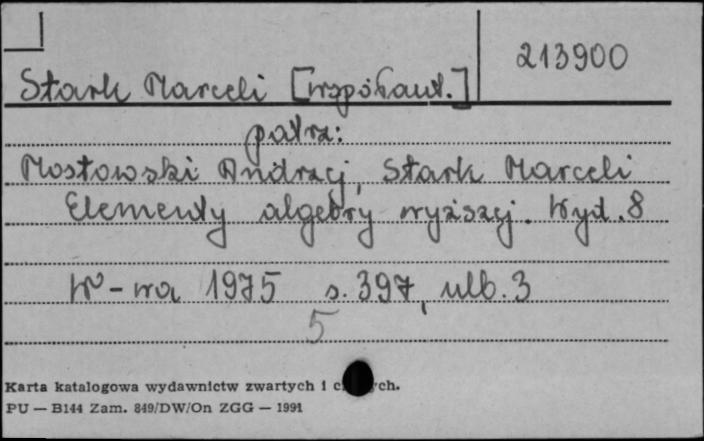 213900
Stark Marceli [współaut.]
patrz:
Mostowski Andrzej, Stark Marceli
Elementy algebry wyższej. Wyd. 8
W-wa 1975 s. 397, ulb. 3
5
Karta katalogowa wydawnictw zwartych i ch.
PU — B144 Zam. 849/DW/On ZGG — 1991